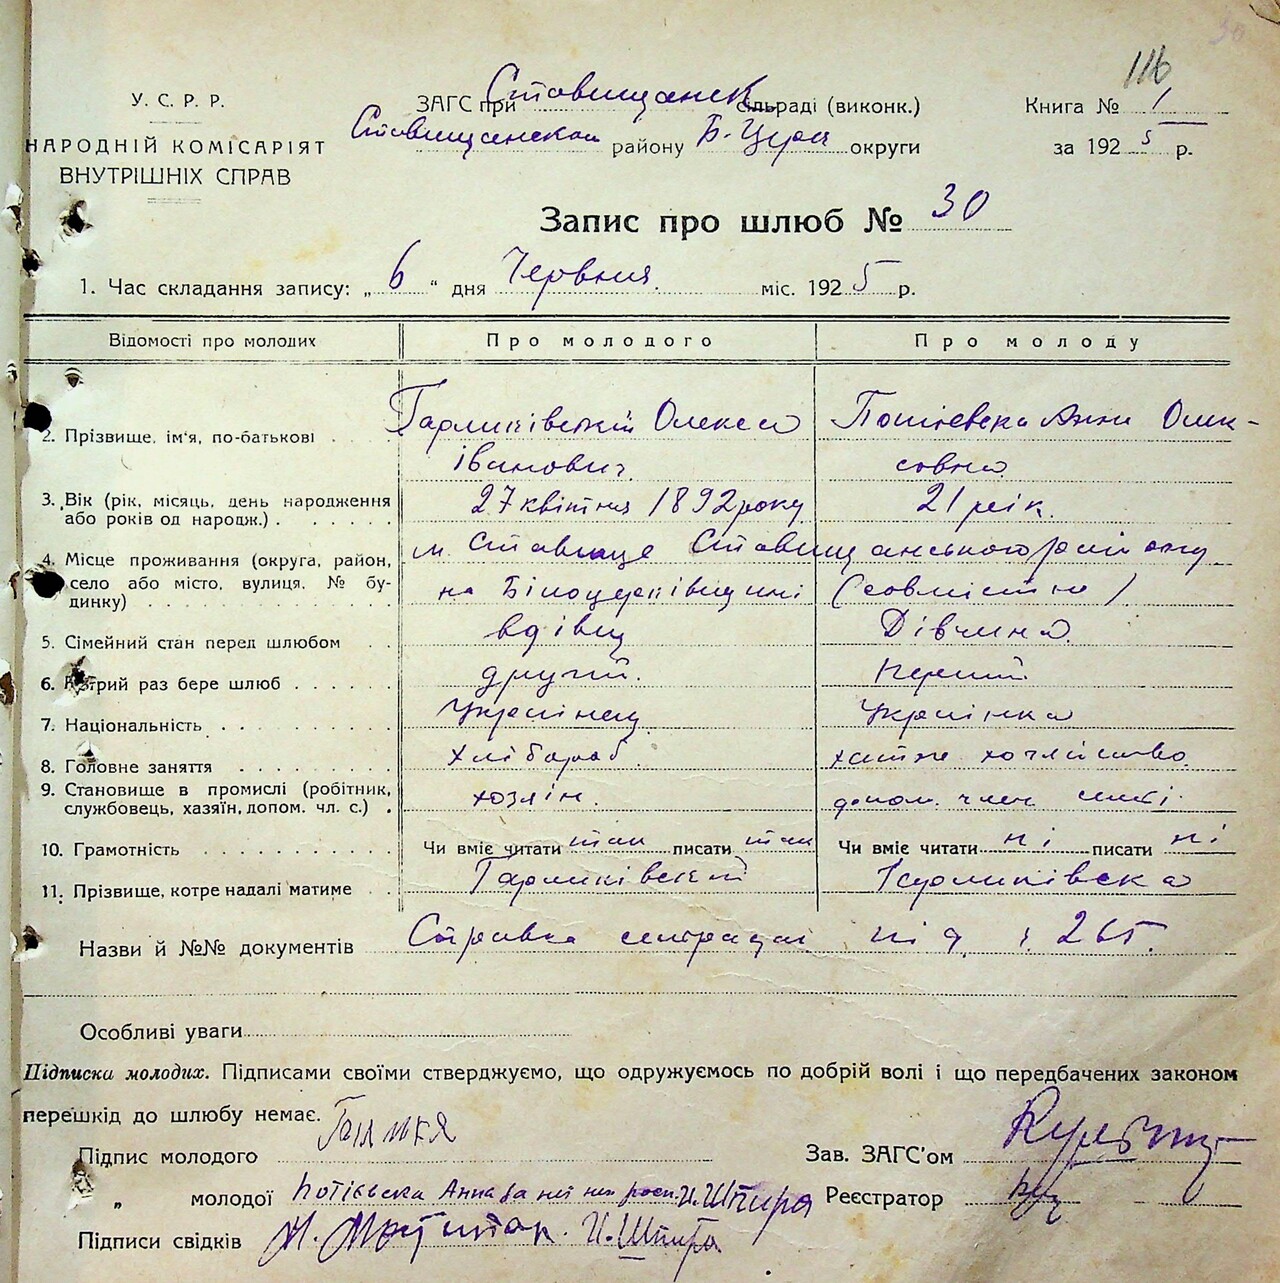 30
116
У. С. Р. Р.
НАРОДНІЙ КОМІСАРІЯТ
ВНУТРІШНІХ СПРАВ
ЗАГС при Ставищанск сільраді (виконк.)
Ставищанском району Б-Церк округи
Книга № 1
за 1925 р.
Запис про шлюб № 30
1. Час складання запису: „ 6 “ дня Червня міс. 1925 р.
Відомості про молодих
Про молодого
Про молоду
2. Прізвище, ім'я, по-батькові
Гарликівский Олекса
Іванович
Потієвска Анна Олек-
совна
3. Вік (рік, місяць, день народження
або років од народж.)
27 квітня 1892 року
21 рік.
4. Місце проживання (округа, район,
село або місто, вулиця, № бу-
динку)
м. Ставище Ставищанського району
на Білоцерківщині (совмістно)
5. Сімейний стан перед шлюбом
вдівец
Дівчина
6. Котрий раз бере шлюб
другий.
перший
7. Національність
Українец
Українка
8. Головне заняття
хлібороб
хатне хозяйство
9. Становище в промислі (робітник,
службовець, хазяїн, допом. чл. с.)
хозяін.
допом. член семї
10. Грамотність
Чи вміє читати так писати так
Чи вміє читати ні писати ні
11. Прізвище, котре надалі матиме
Гарликівский
Гарликівска
Назви й №№ документів Справка сельради
Особливі уваги
Підписка молодих. Підписами своїми стверджуємо, що одружуємось по добрій волі і що передбачених законом
перешкід до шлюбу немає.
Підпис молодого
Зав. ЗАГС'ом
„ молодої Потієвска Анна за неї неп. росп. И. Шпира
Реєстратор
Підписи свідків И. Шпира